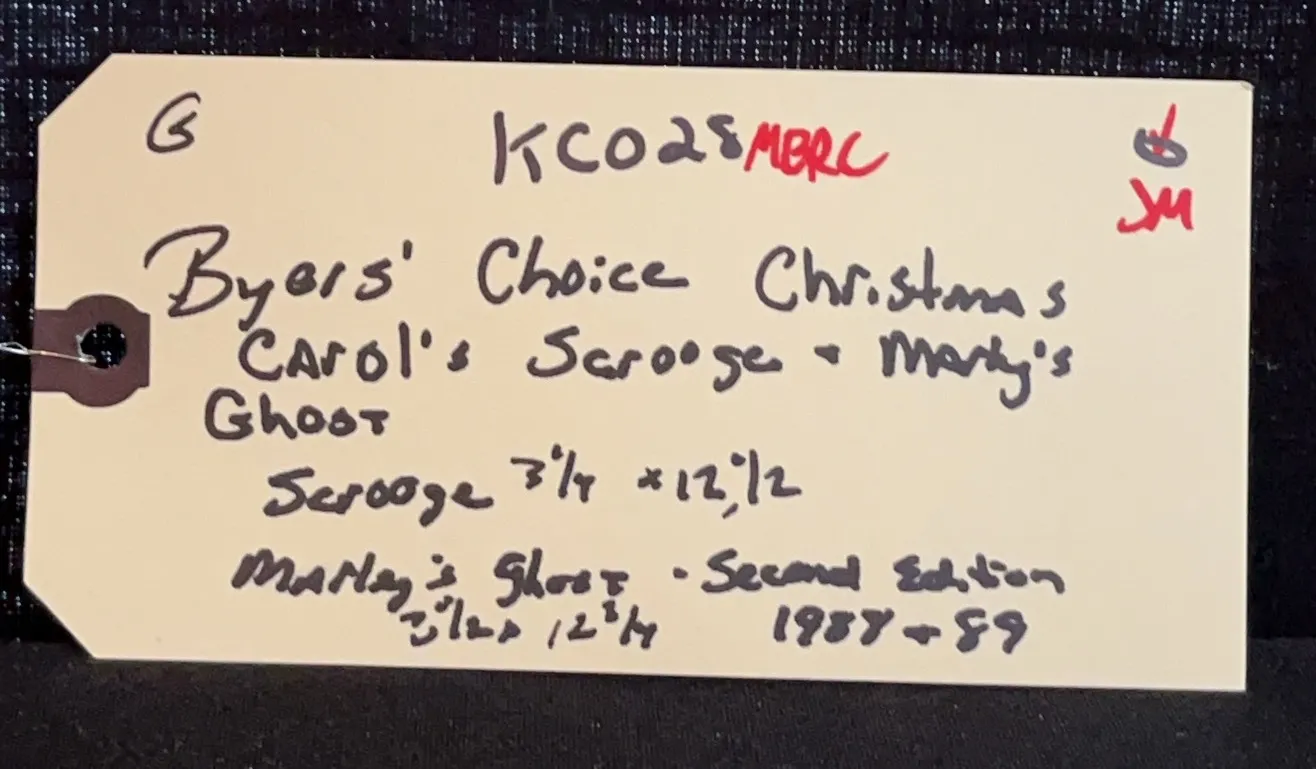 G KCO28 MBRC
JM
Byers' Choice Christmas
Carol's Scrooge + Marly's
Ghost
Scrooge 3 1/4 x 12 1/2
Marley's Ghost - Second Edition
3 1/2 x 12 3/4 1988 + 89